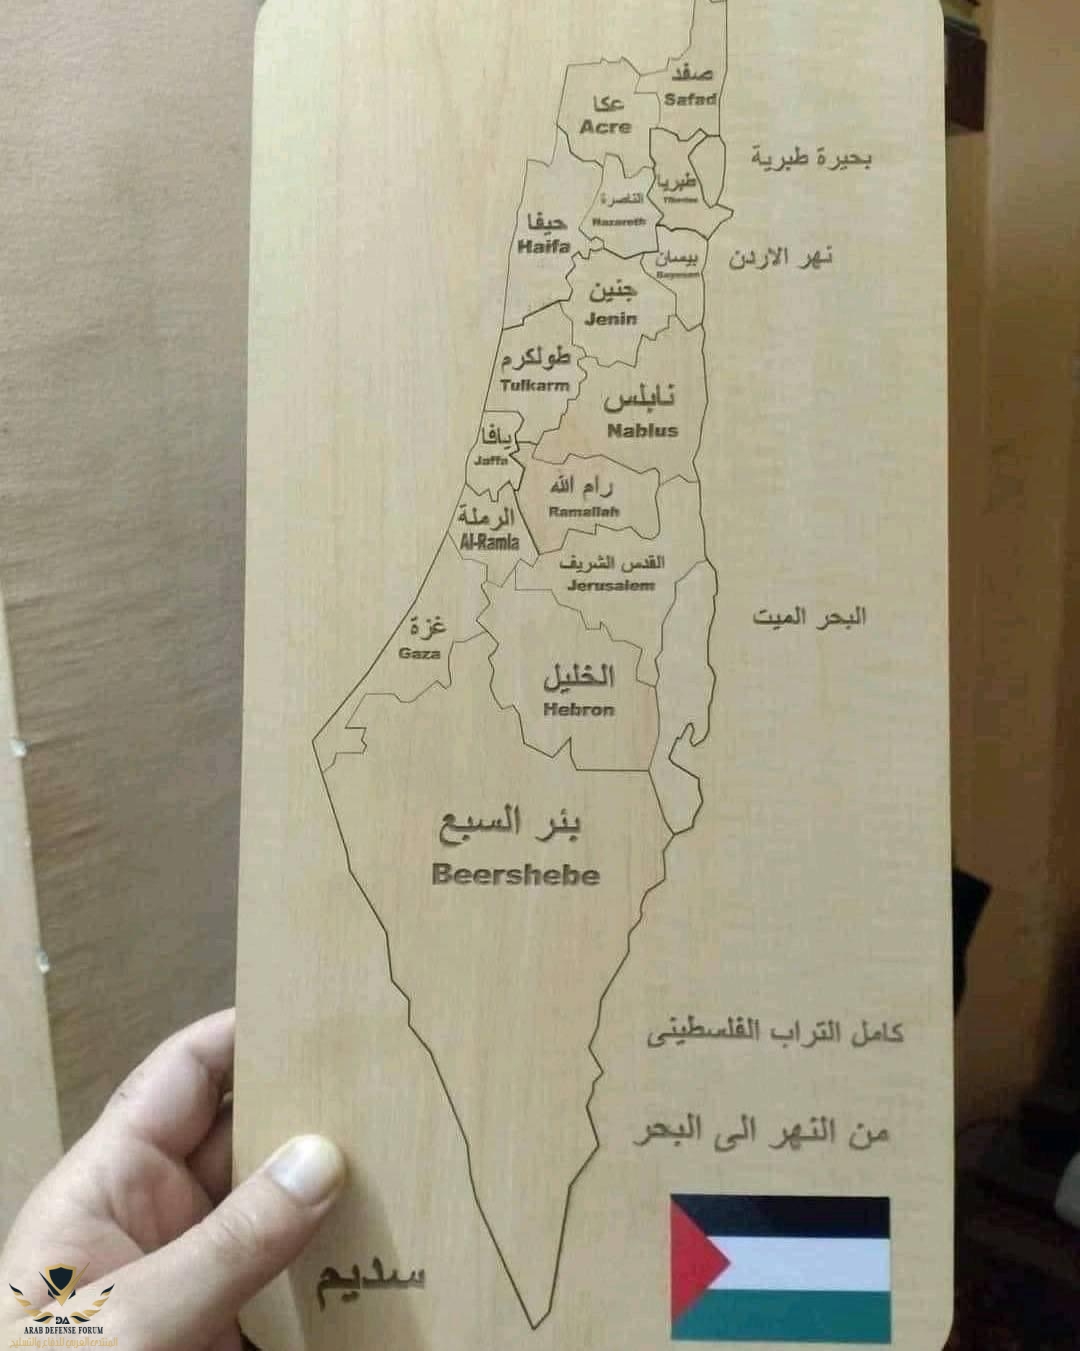 صفد
Safad
عكا
Acre
بحيرة طبرية
طبريا
Tiberias
الناصرة
Nazareth
حيفا
Haifa
نهر الاردن
بيسان
جنين
Jenin
طولكرم
Tulkarm
نابلس
Nablus
يافا
Jaffa
رام الله
Ramallah
الرملة
Al-Ramla
القدس الشريف
Jerusalem
البحر الميت
غزة
Gaza
الخليل
Hebron
بئر السبع
Beershebe
كامل التراب الفلسطيني
من النهر الى البحر
سديم
DA
ARAB DEFENSE FORUM
المنتدى العربي للدفاع والتسليح